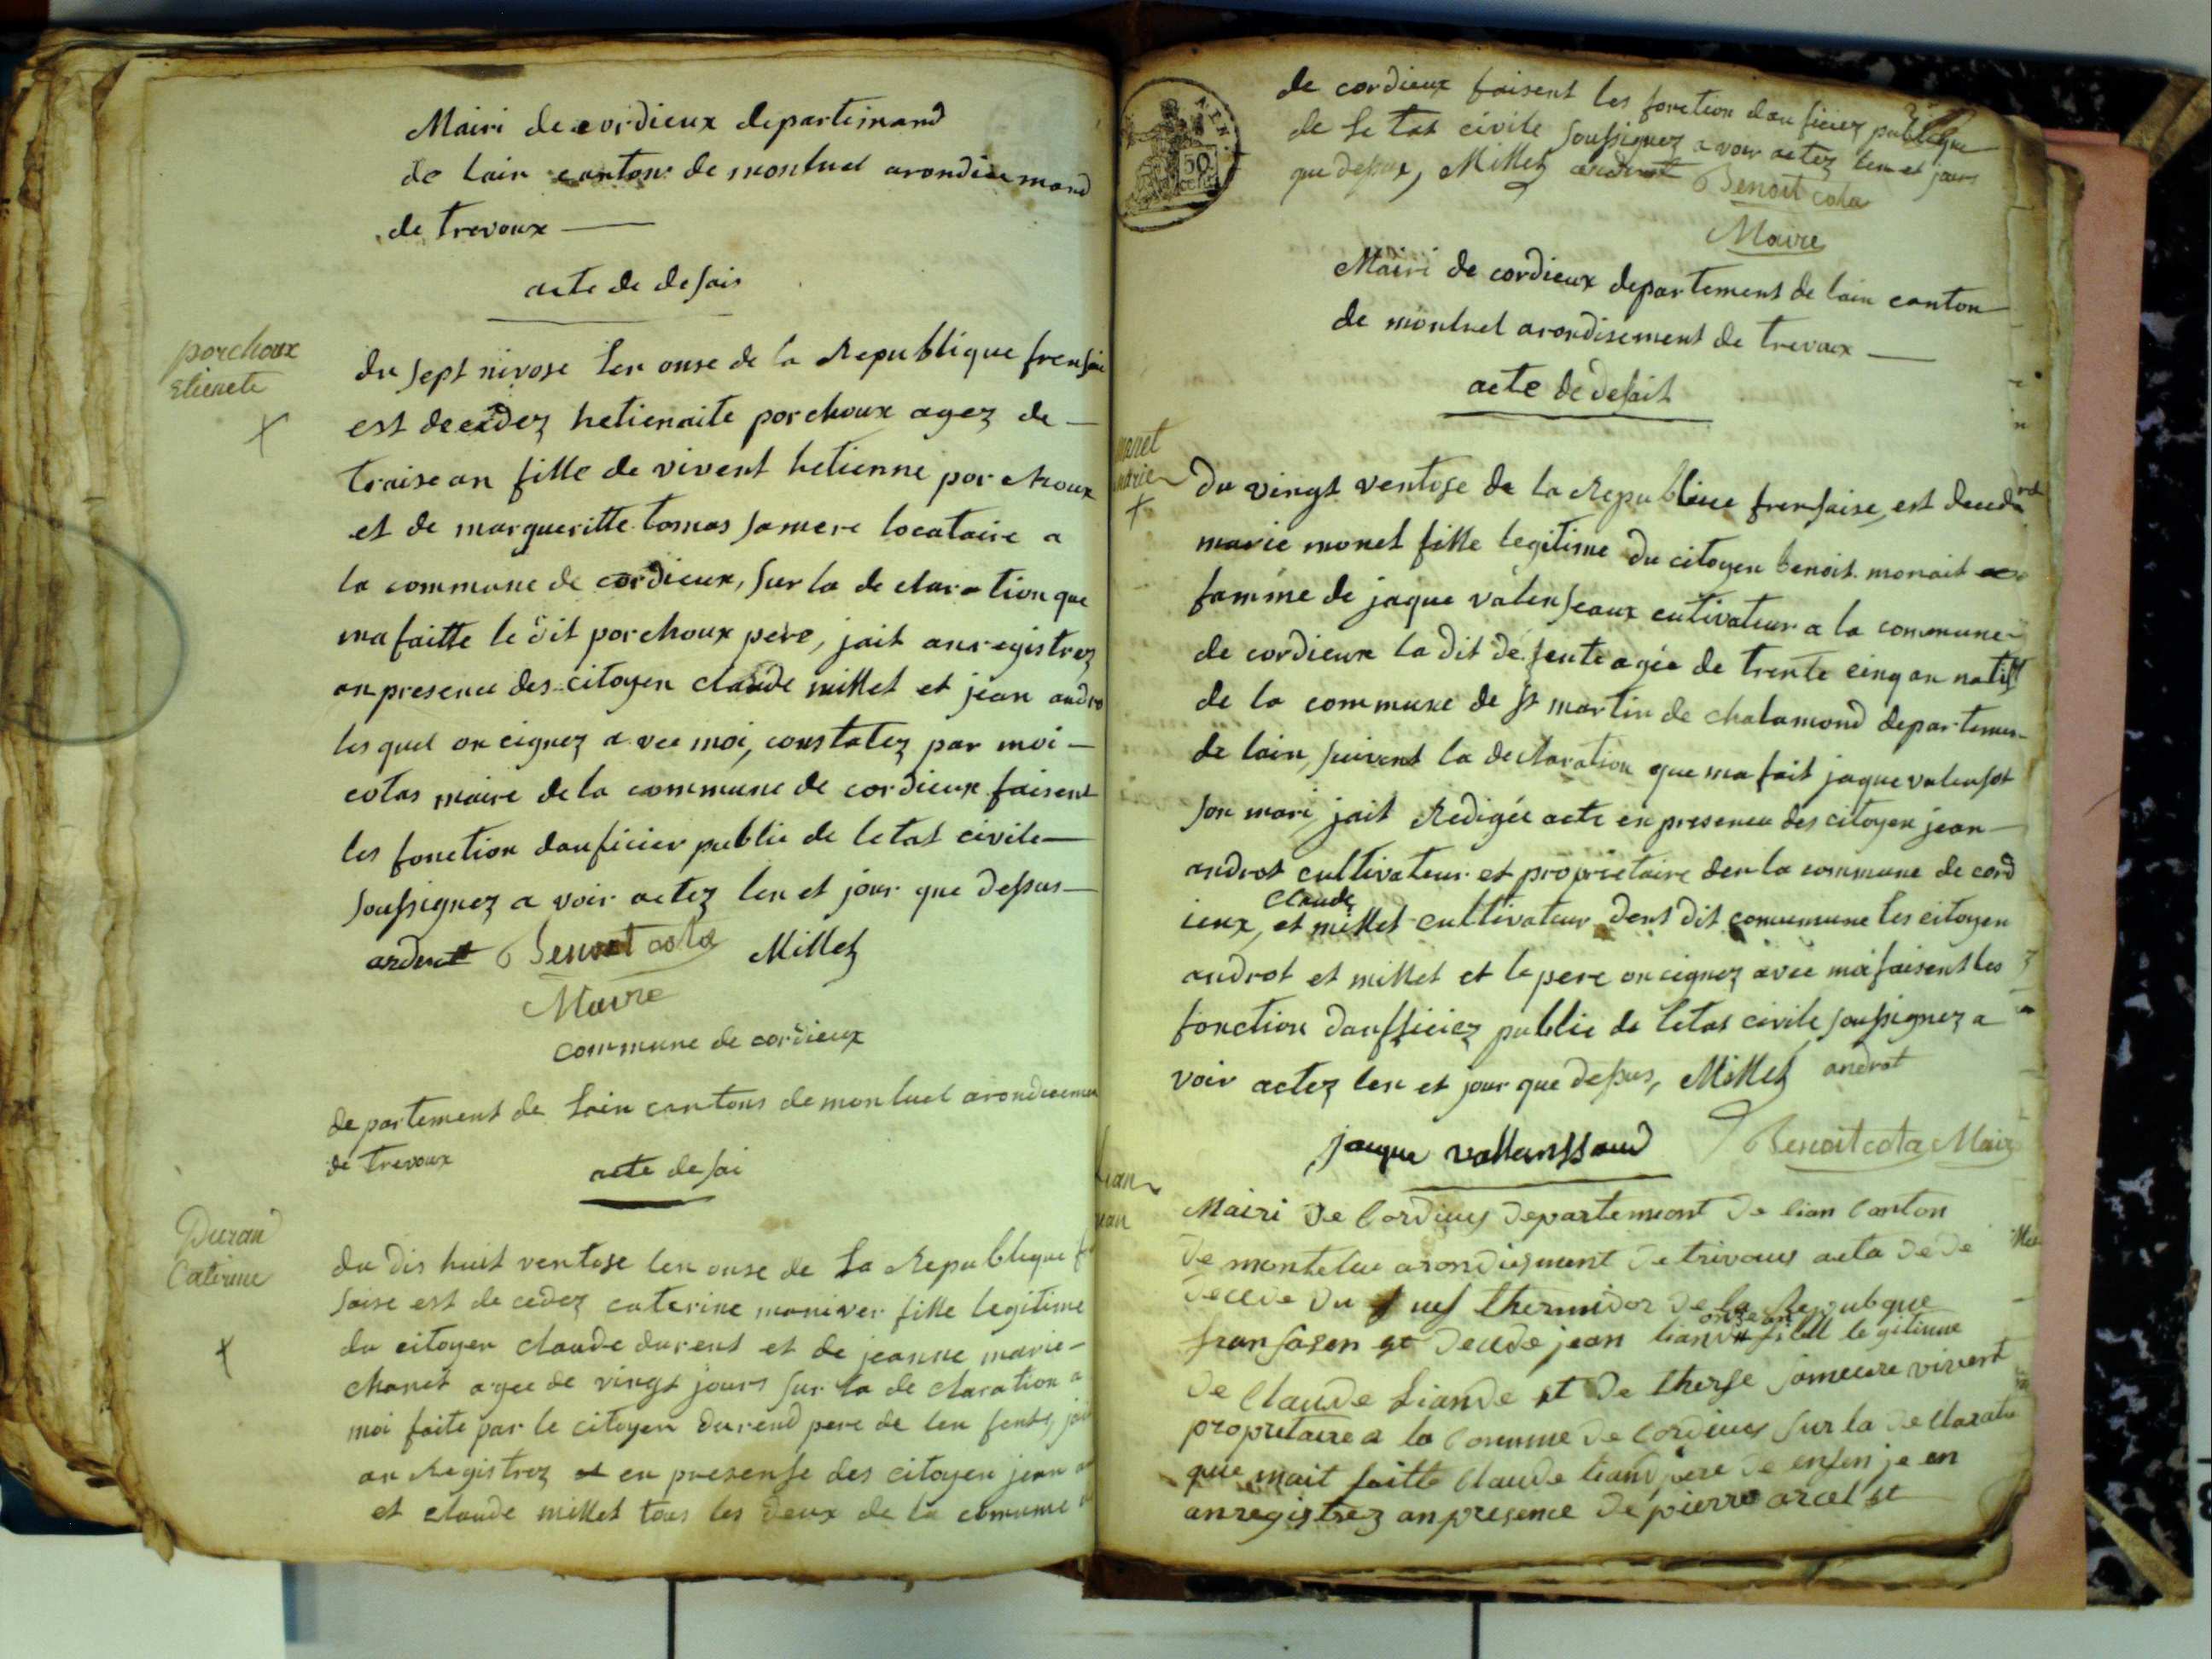 Mairi de cordieux departimand
de lain canton de montuel arondicemand
de trevoux
acte de desais
porchoux
etienete
du sept nivose len onse de la Republique fransai
est decedez hetienaite porchoux agez de
traise an fille de vivent hetienne porchoux
et de margueritte tomas samere locataire a
la commune de cordieux, sur la declaration que
ma faitte le dit porchoux pere, jait anregistrez
an presence des citoyen claude millet et jean andro
lesquel on cignez avec moi, constatez par moi
cotas maire de la commune de cordieux faisent
les fonction dauficier public de letat civile
soussignez avoir actez len et jour que dessus
Benoit cota Millet
Maire
commune de cordieux
departement de lain cantons de montuel arondicemen
de trevoux
acte desai
Duran
Caterine
du dis huit ventose len onse de la Republique f
saise est decedez caterine fille legitime
du citoyen claude durent et de jeanne marie
chanet agee de vingt jours sur la declaration a
moi faite par le citoyen durend pere de len fent, jai
an Registrez et en presense des citoyen jean
et claude millet tous les deux de la comune
A.EN.
50
cent
de cordieux faisent les fonction dau ficiez publique
de letat civile soussignez avoir actez len et jours
que dessus, Millet Benoit cota
Maire
Mairi de cordieux departement de lain canton
de montuel arondisement de trevoux
acte de desait
monet
marie
du vingt ventose de la Republiue frensaise, est deced
marie monet fille legitime du citoyen benoit monait
famme de jaque valenseaux cutivateur a la commune
de cordieux la dit desente agée de trente cinq an natif
de la commune de st martin de chalamond departemen
de lain, suivent la declaration que ma fait jaque valensot
son mari, jait Redigée acte en presence des citoyen jean
androt cultivateur et proprietaire den la commune de cord
claude
ieux, et millet cultivateur dens dit commune les citoyen
androt et millet et le pere on cignez avec moi faisent les
fonction daufficiez public de letat civile soussignez a
voir actez len et jour que desus, Millet androt
jaque vallanssaud Benoit cota Maire
lian
jean
Mairi de Cordieux departement de lian Canton
de montelue arondisment de trivous acta de de
decede du nef thermidor de la Repubque
onse an
fransaisen et decede jean liand fill legitime
de Claude Liande et de therse samere vivent
propritaire a la Commune de Cordieux sur la declaratio
que mait faitte Claude liand pere de enfen je en
anregistrez an presence de pierre arcel et